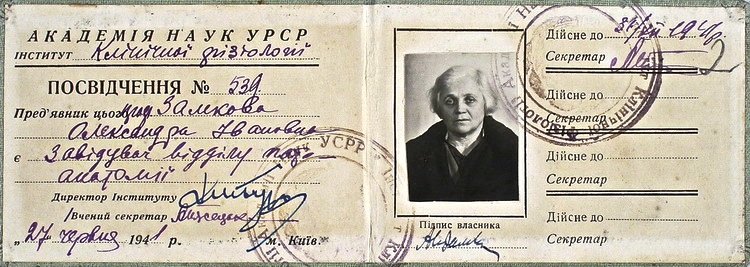 АКАДЕМІЯ НАУК УРСР
ІНСТИТУТ Клінічної фізіології
ПОСВІДЧЕННЯ № 539
Пред'явник цього
Александра Ивановна
є Завідувач відділу пат.
анатомії
Директор Інституту
Вчений секретар
„27 червня 1941 р. м. Київ.
Підпис власника
Дійсне до 31/XII 1941р.
Секретар
Дійсне до
Секретар
Дійсне до
Секретар
Дійсне до
Секретар